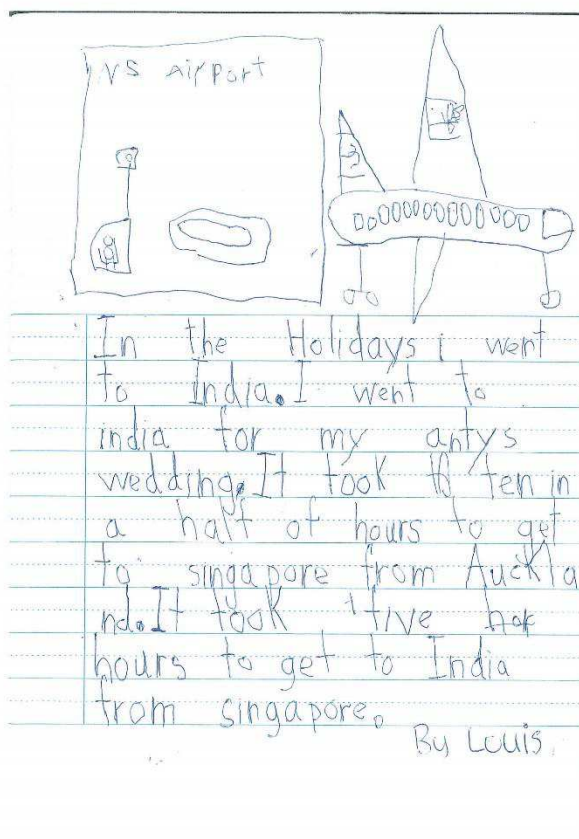 VS Airport
VS
In the Holidays i went
to India. I went to
india for my antys
wedding. It took ten in
a half of hours to get
to singapore from Auckla
nd. It took five
hours to get to India
from singapore.
By Louis.